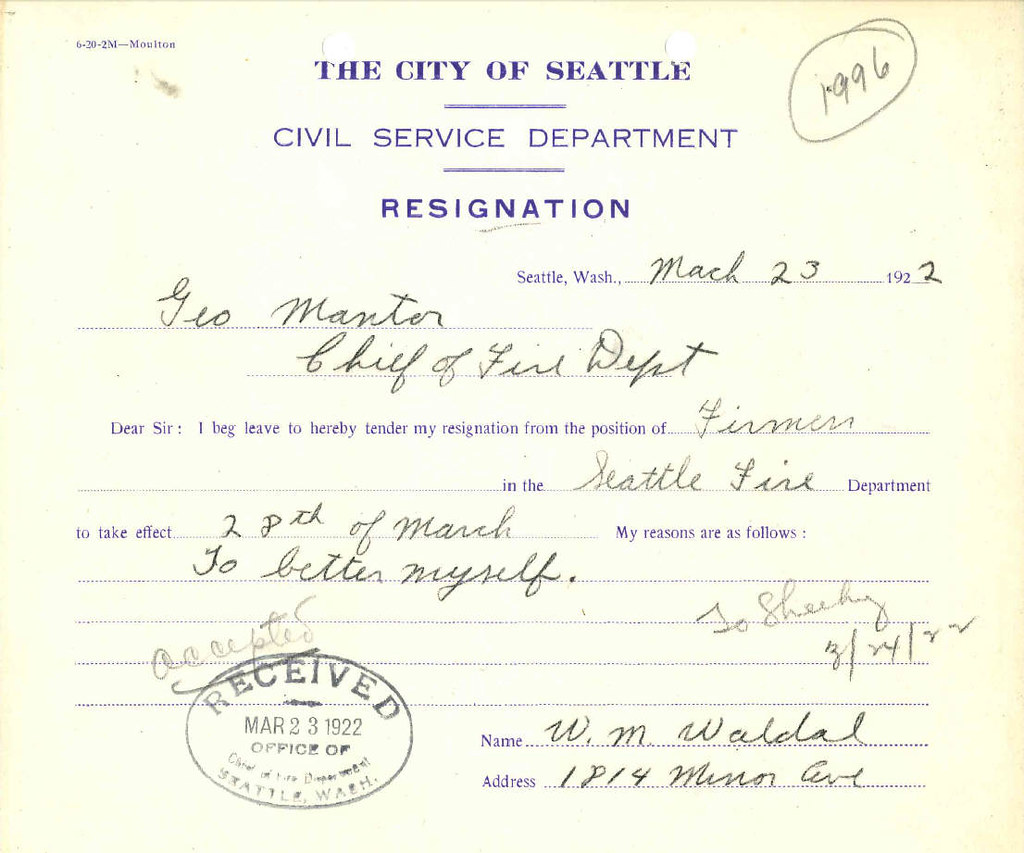 6-20-2M—Moulton
1996
THE CITY OF SEATTLE
CIVIL SERVICE DEPARTMENT
RESIGNATION
Seattle, Wash., Mach 23 1922
Geo Mantor
Chief of Fire Dept
Dear Sir: I beg leave to hereby tender my resignation from the position of Firmen
in the Seattle Fire Department
to take effect 28th of March My reasons are as follows:
To better myself.
To Sheehy
accepted
3/24/22
RECEIVED
MAR 23 1922
OFFICE OF
Chief of Fire Department
SEATTLE, WASH.
Name W. M. Waldal
Address 1814 Minor Ave